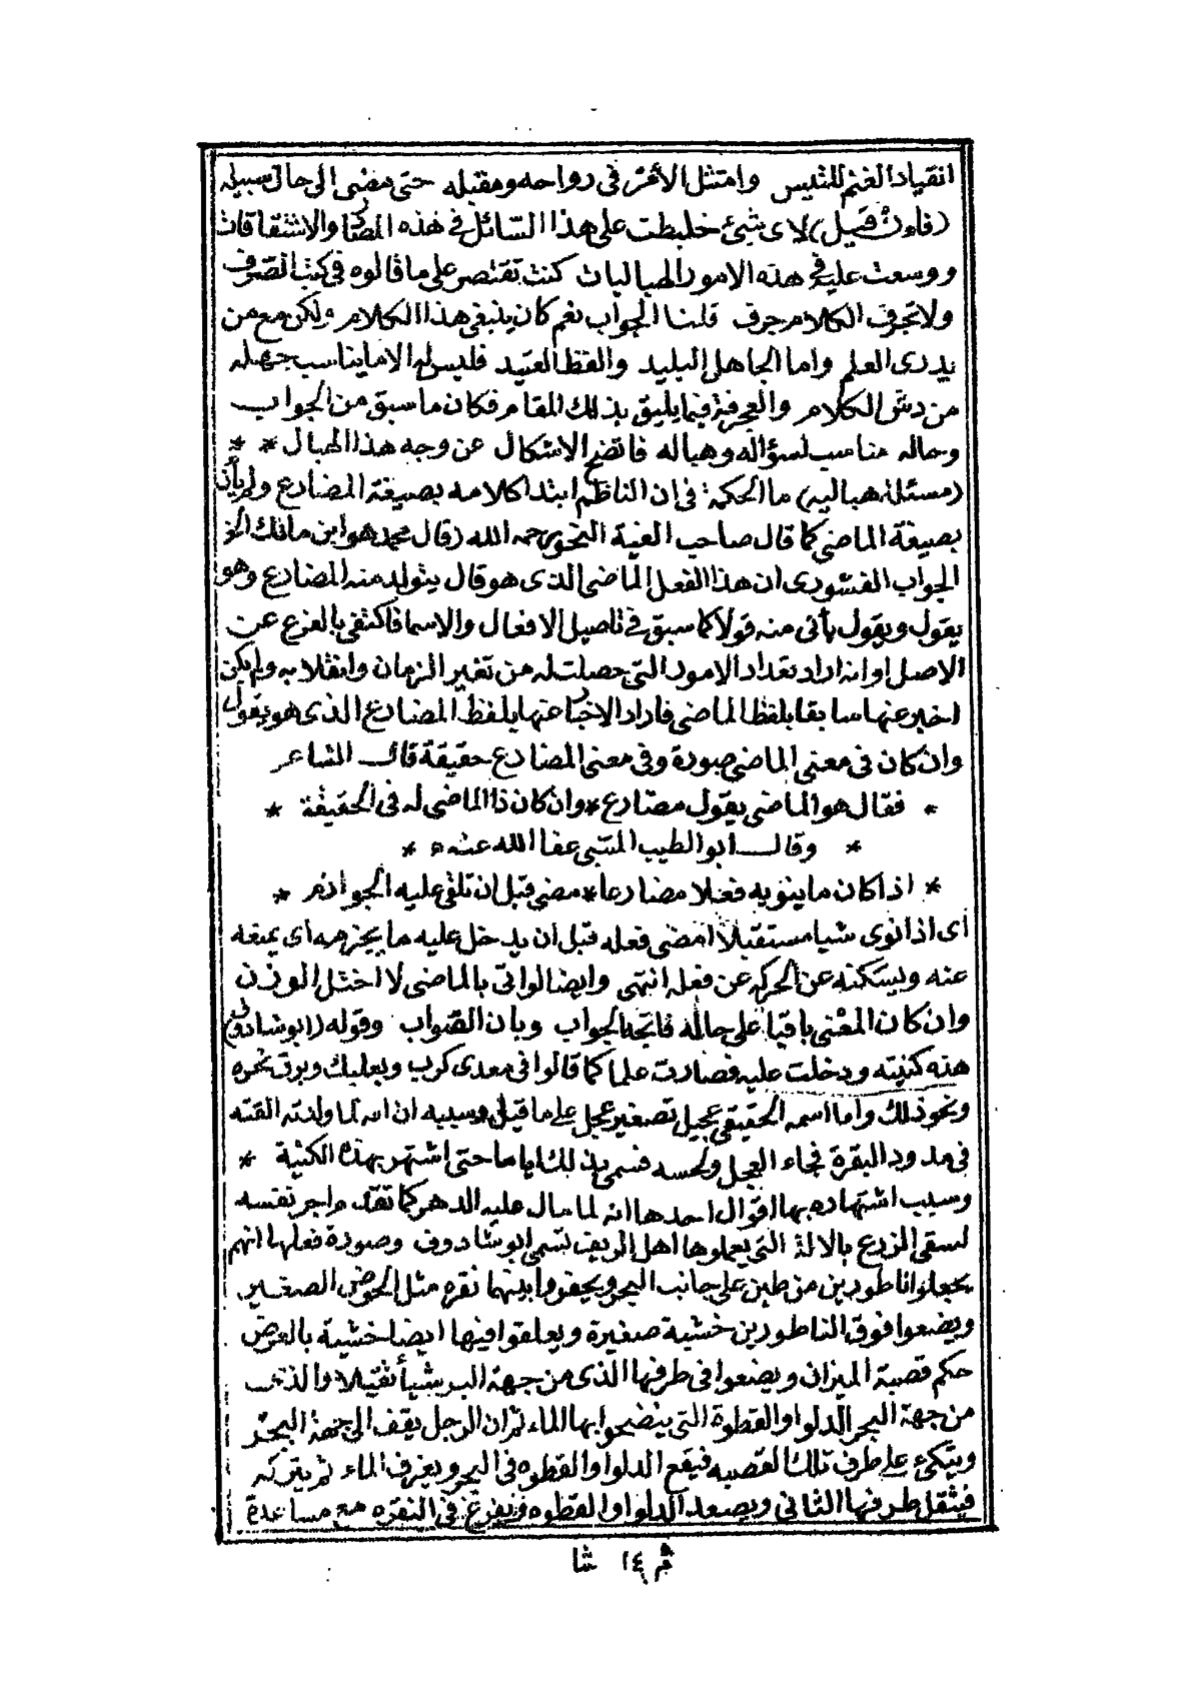 انقياد الغنم للتيس وامتثل الأمر في رواحه ومقبله حتى مضى الى حال سبيله
(فان قيل) لاى شئ خلبطت على هذا السائل في هذه المصادر والاشتقاقات
ووسعت عليه في هذه الامور الهباليات كنت تقتصر على ما قالوه في كتب التصريف
ولا تجرف الكلام جرف قلنا الجواب نعم كان ينبغي هذا الكلام ولكن مع من
يدرى العلم واما الجاهل البليد والفظ العنيد فليس له الا ما يناسب جهله
من دش الكلام والعجرفة فيما يليق بذلك المقام فكان ما سبق من الجواب
وحاله مناسب لسؤاله وهباله فاتضح الاشكال عن وجه هذا الهبال * *
(مسئلة هباليه) ما الحكمة في ان الناظم ابتدا كلامه بصيغة المضارع ولم يأت
بصيغة الماضي كما قال صاحب الفية النحو رحمه الله (قال محمد هو ابن مالك الخ
الجواب الفشودى ان هذا الفعل الماضي الذى هو قال يتولد منه المضارع وهو
يقول ويقول يأتى منه قولا كما سبق في تاصيل الافعال والاسما فاكتفى بالفرع عن
الاصل او انه اراد تعداد الامور التي حصلت له من تغير الزمان وانقلابه ولم يكن
اخبر عنها سابقا بلفظ الماضي فاراد الاخبار عنها بلفظ المضارع الذى هو يقول
وان كان في معنى الماضي صورة وفي معنى المضارع حقيقة قال الشاعر
* فقال هو الماضي يقول مضارع * وان كان ذا الماضي له في الحقيقة *
* وقال ابو الطيب المتنبى عفا الله عنه * *
* اذا كان ما ينويه فعلا مضارعا * مضى قبل ان تلقى عليه الجوازم *
أى اذا نوى شيا مستقبلا أمضى فعله قبل ان يدخل عليه ما يجزمه أى يمنعه
عنه ويسكنه عن الحركه عن فعله انتهى وايضا لو اتى بالماضي لا اختل الوزن
وان كان المعنى باقيا على حاله فاتجه الجواب وبان الصواب وقوله (ابو شادوف)
هذه كنيته ودخلت عليه فصارت علما كما قالوا في معدى كرب وبعلبك وبرق نحره
ونحو ذلك واما اسمه الحقيقى عجيل تصغير عجل على ما قيل وسببه ان امه لما ولدته القته
في مدود البقرة فجاء العجل ولحسه فسمى بذلك اياما حتى اشتهر بهذه الكنية *
وسبب اشتهاره بها اقوال احدها انه لما مال عليه الدهر كما تقدم اجر نفسه
لسقى الزرع بالالة التي يعملوها اهل الريف تسمى ابو شادوف وصورة فعلها انهم
يجعلوا ناطورين من طين على جانب البحر ويحفروا بينهما نقره مثل الحوض الصغير
ويضعوا فوق الناطورين خشبة صغيرة ويعلقوا فيها ايضا خشبة بالعرض
حكم قصبة الميزان ويضعوا في طرفها الذى من جهة البر شيأ ثقيلا والذى
من جهة البحر الدلو او القطوة التي ينضحوا بها الماء ثم ان الرجل يقف الى جهة البحر
ويتكئ على طرف تلك القصبه فيقع الدلو او القطوه في البحر ويغرف الماء ثم يتركه
فيثقل طرفها الثانى ويصعد الدلو او القطوه فيفرغ في النقره مع مساعدة
١٤ شا